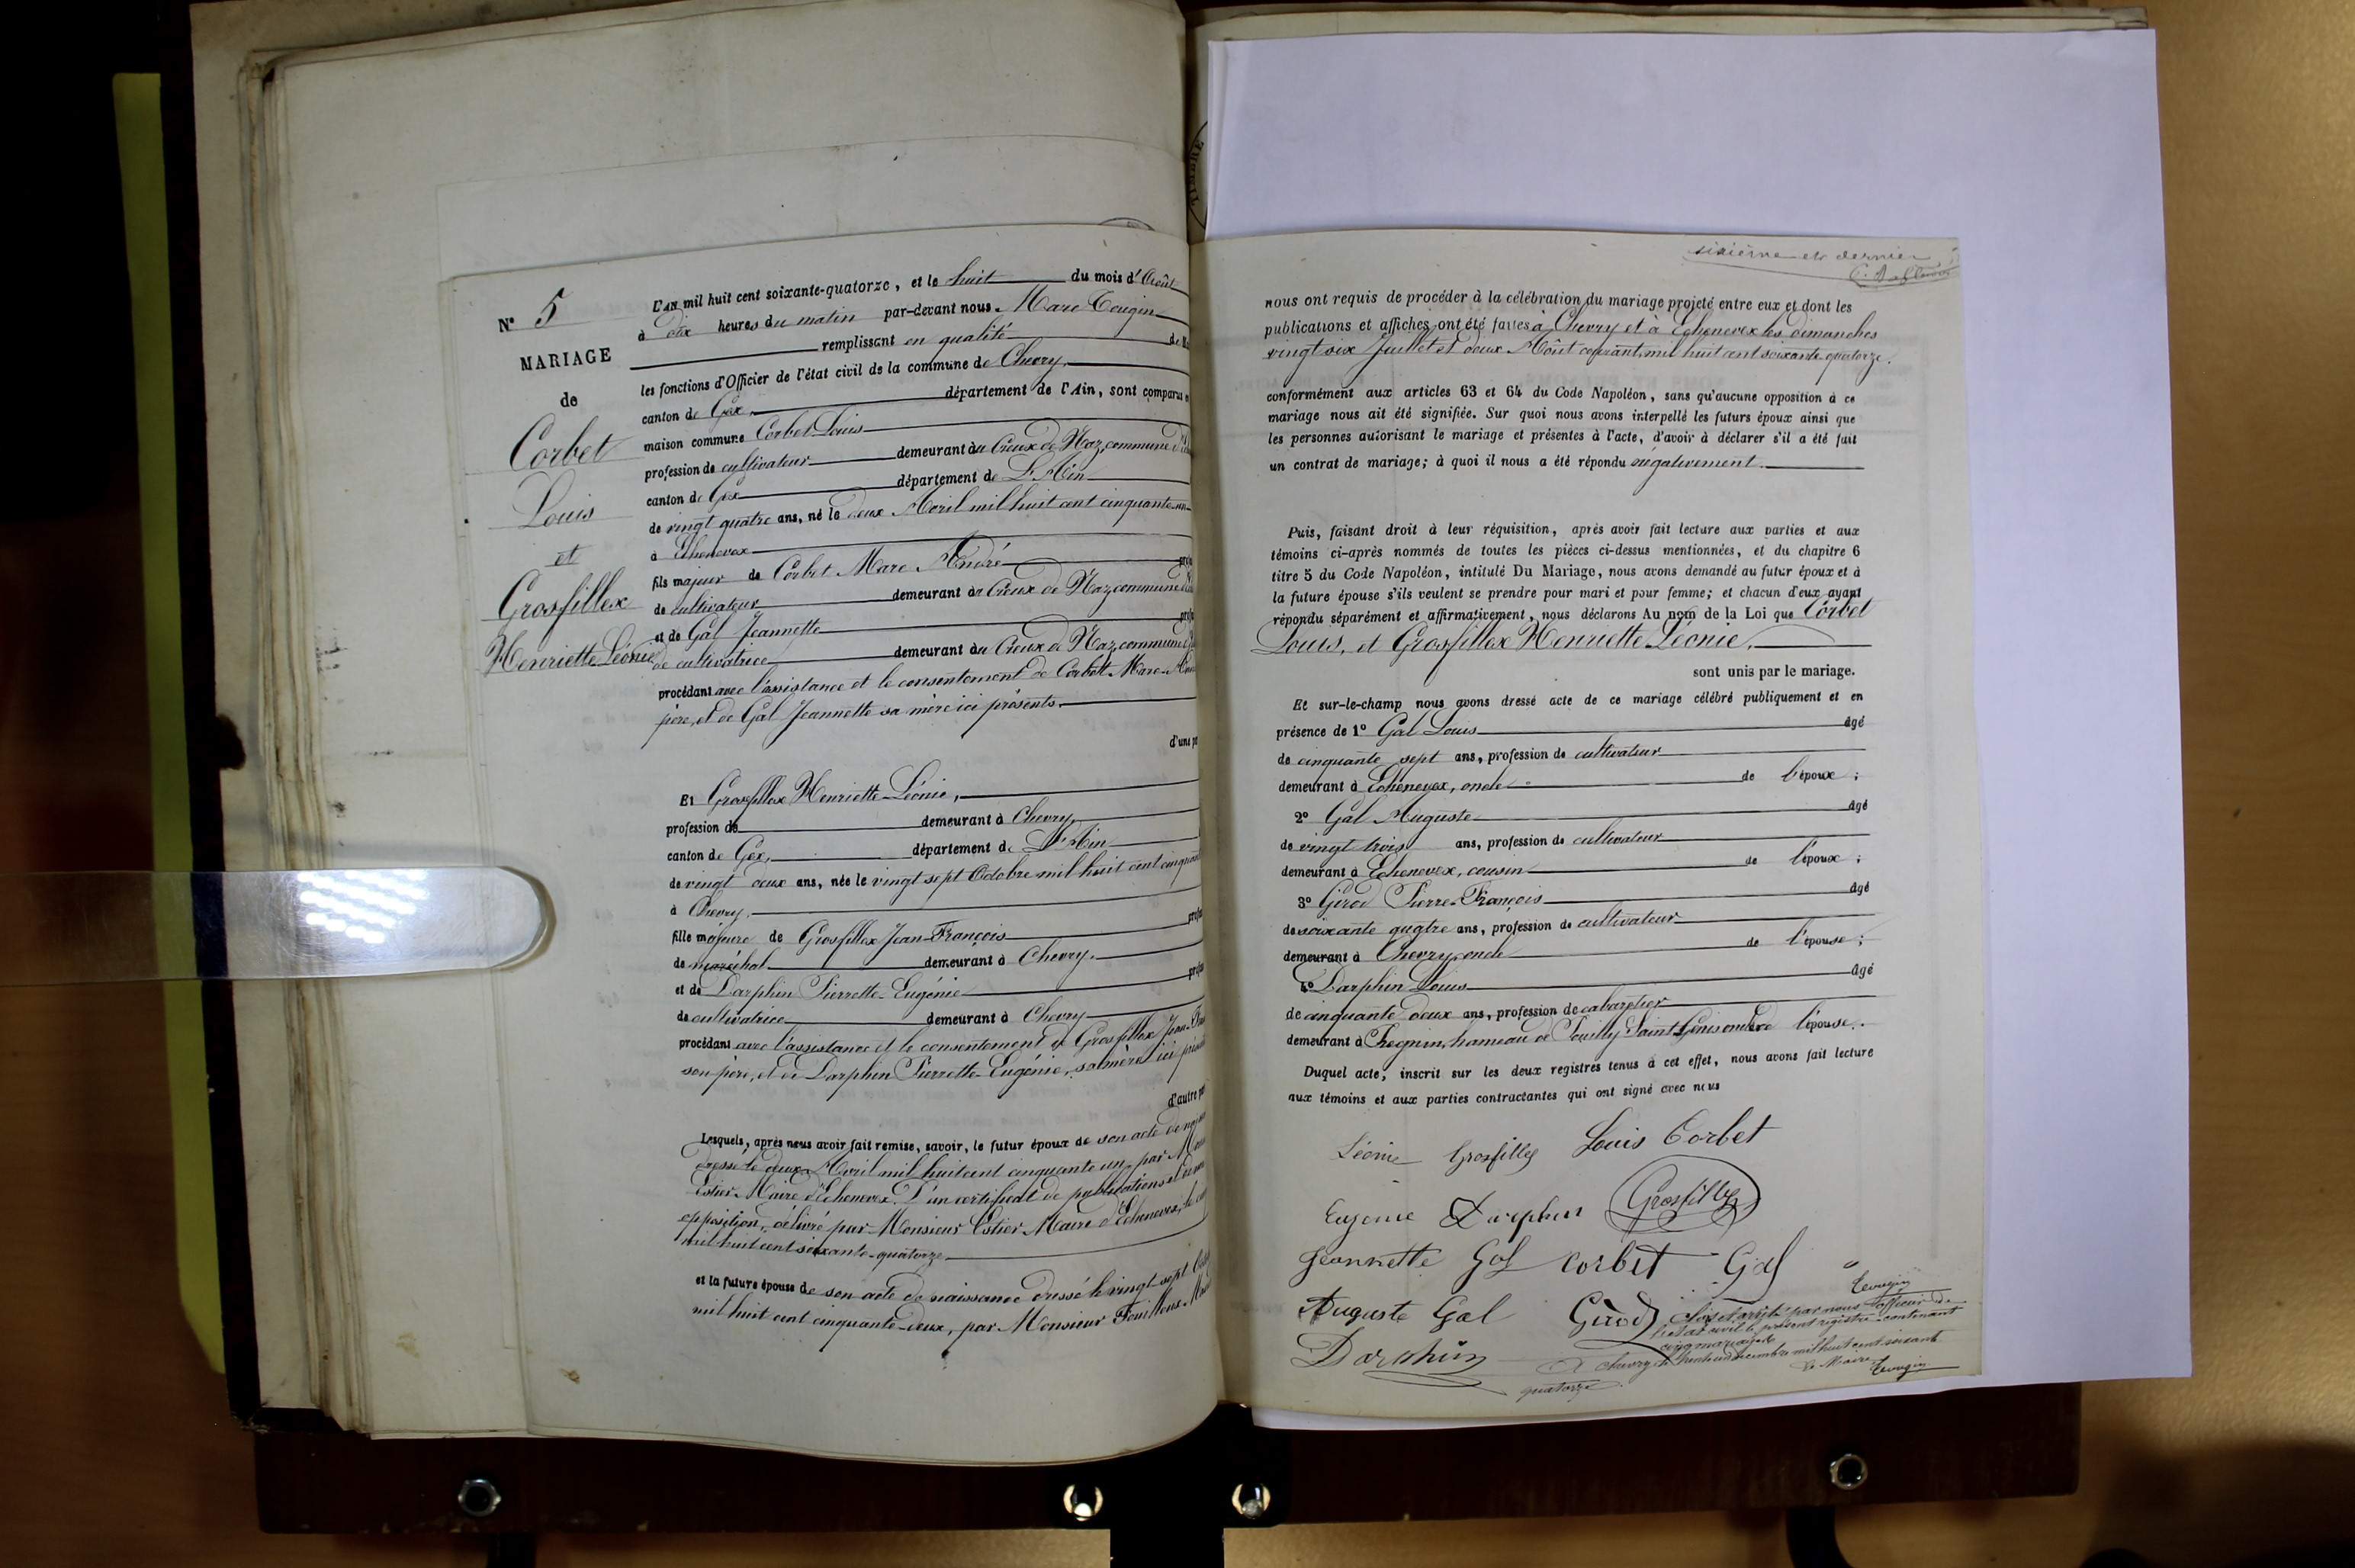 N° 5
MARIAGE
de
Corbet
Louis
et
Grosfillex
Henriette Léonie
L'an mil huit cent soixante-quatorze, et le huit du mois d'Août
à dix heures du matin par-devant nous Marc Tougin
remplissant en qualité de
les fonctions d'Officier de l'état civil de la commune de Chevry,
canton de Gex, département de l'Ain, sont comparus
maison commune Corbet Louis
profession de cultivateur demeurant au Creux de Naz, commune
canton de Gex département de L'Ain
de vingt quatre ans, né le deux Avril mil huit cent cinquante-un
à Echenevex
fils majeur de Corbet Marc André
de cultivateur demeurant au Creux de Naz, commune
et de Gal Jeannette
de cultivatrice demeurant au Creux de Naz, commune
procédant avec l'assistance et le consentement de Corbet Marc
père, et de Gal Jeannette sa mère ici présents.
d'une
Et Grosfillex Henriette Léonie,
profession de demeurant à Chevry,
canton de Gex, département de L'Ain
de vingt deux ans, née le vingt sept Octobre mil huit cent
à Chevry,
fille majeure de Grosfillex Jean-François
de maréchal demeurant à Chevry.
et de Darphin Pierrette-Eugénie
de cultivatrice demeurant à Chevry
procédant avec l'assistance et le consentement de Grosfillex Jean
son père, et de Darphin Pierrette-Eugénie, sa mère ici
d'autre
Lesquels, après nous avoir fait remise, savoir, le futur époux de son acte de
dressé le deux Avril mil huit cent cinquante un, par
Estier Maire d'Echenevex. D'un certificat de publications et de
opposition, délivré par Monsieur Estier Maire d'Echenevex, le
mil huit cent soixante-quatorze
et la future épouse de son acte de naissance dressé le vingt-sept
mil huit cent cinquante-deux, par Monsieur Fouilloux
sixième et dernier
nous ont requis de procéder à la célébration du mariage projeté entre eux et dont les
publications et affiches ont été faites à Chevry et à Echenevex les dimanches
vingt six Juillet et deux Août courant, mil huit cent soixante-quatorze.
conformément aux articles 63 et 64 du Code Napoléon, sans qu'aucune opposition à ce
mariage nous ait été signifiée. Sur quoi nous avons interpellé les futurs époux ainsi que
les personnes autorisant le mariage et présentes à l'acte, d'avoir à déclarer s'il a été fait
un contrat de mariage; à quoi il nous a été répondu négativement.
Puis, faisant droit à leur réquisition, après avoir fait lecture aux parties et aux
témoins ci-après nommés de toutes les pièces ci-dessus mentionnées, et du chapitre 6
titre 5 du Code Napoléon, intitulé Du Mariage, nous avons demandé au futur époux et à
la future épouse s'ils veulent se prendre pour mari et pour femme; et chacun d'eux ayant
répondu séparément et affirmativement, nous déclarons Au nom de la Loi que Corbet
Louis, et Grosfillex Henriette Léonie,
sont unis par le mariage.
Et sur-le-champ nous avons dressé acte de ce mariage célébré publiquement et en
présence de 1° Gal Louis âgé
de cinquante sept ans, profession de cultivateur
demeurant à Echenevex, oncle de l'époux;
2° Gal Auguste âgé
de vingt trois ans, profession de cultivateur
demeurant à Echenevex, cousin de l'époux;
3° Girod Pierre-François âgé
de soixante quatre ans, profession de cultivateur
demeurant à Chevry, oncle de l'épouse;
4° Darphin Louis âgé
de cinquante deux ans, profession de cabaretier
demeurant à Pregnin, hameau de Pouilly Saint Genis oncle de l'épouse.
Duquel acte, inscrit sur les deux registres tenus à cet effet, nous avons fait lecture
aux témoins et aux parties contractantes qui ont signé avec nous
Léonie Grosfillex Louis Corbet
Eugénie Darphin Grosfillex
Jeannette Gal Corbet Gal
Tougin
Auguste Gal Girod
Clos et arrêté par nous officier de
l'état civil le présent registre contenant
cinq mariages
Darphin
A Chevry le trente un décembre mil huit cent soixante
quatorze.
Le Maire Tougin